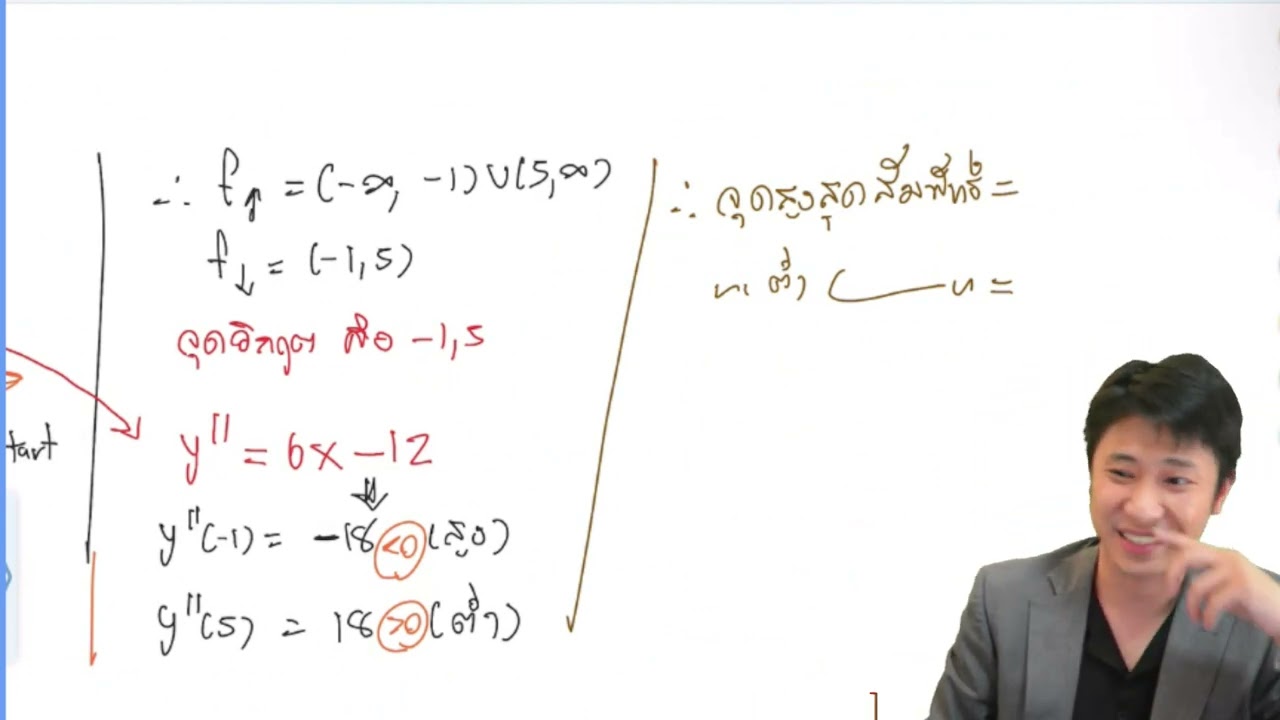 ∴ f↑ = (-∞, -1)∪(5,∞)
f↓ = (-1,5)
จุดวิกฤต คือ -1,5
tart
y'' = 6x - 12
y''(-1) = -18 <0 (สูง)
y''(5) = 18 >0 (ต่ำ)
∴ จุดสูงสุดสัมพัทธ์ =
ต่ำ =